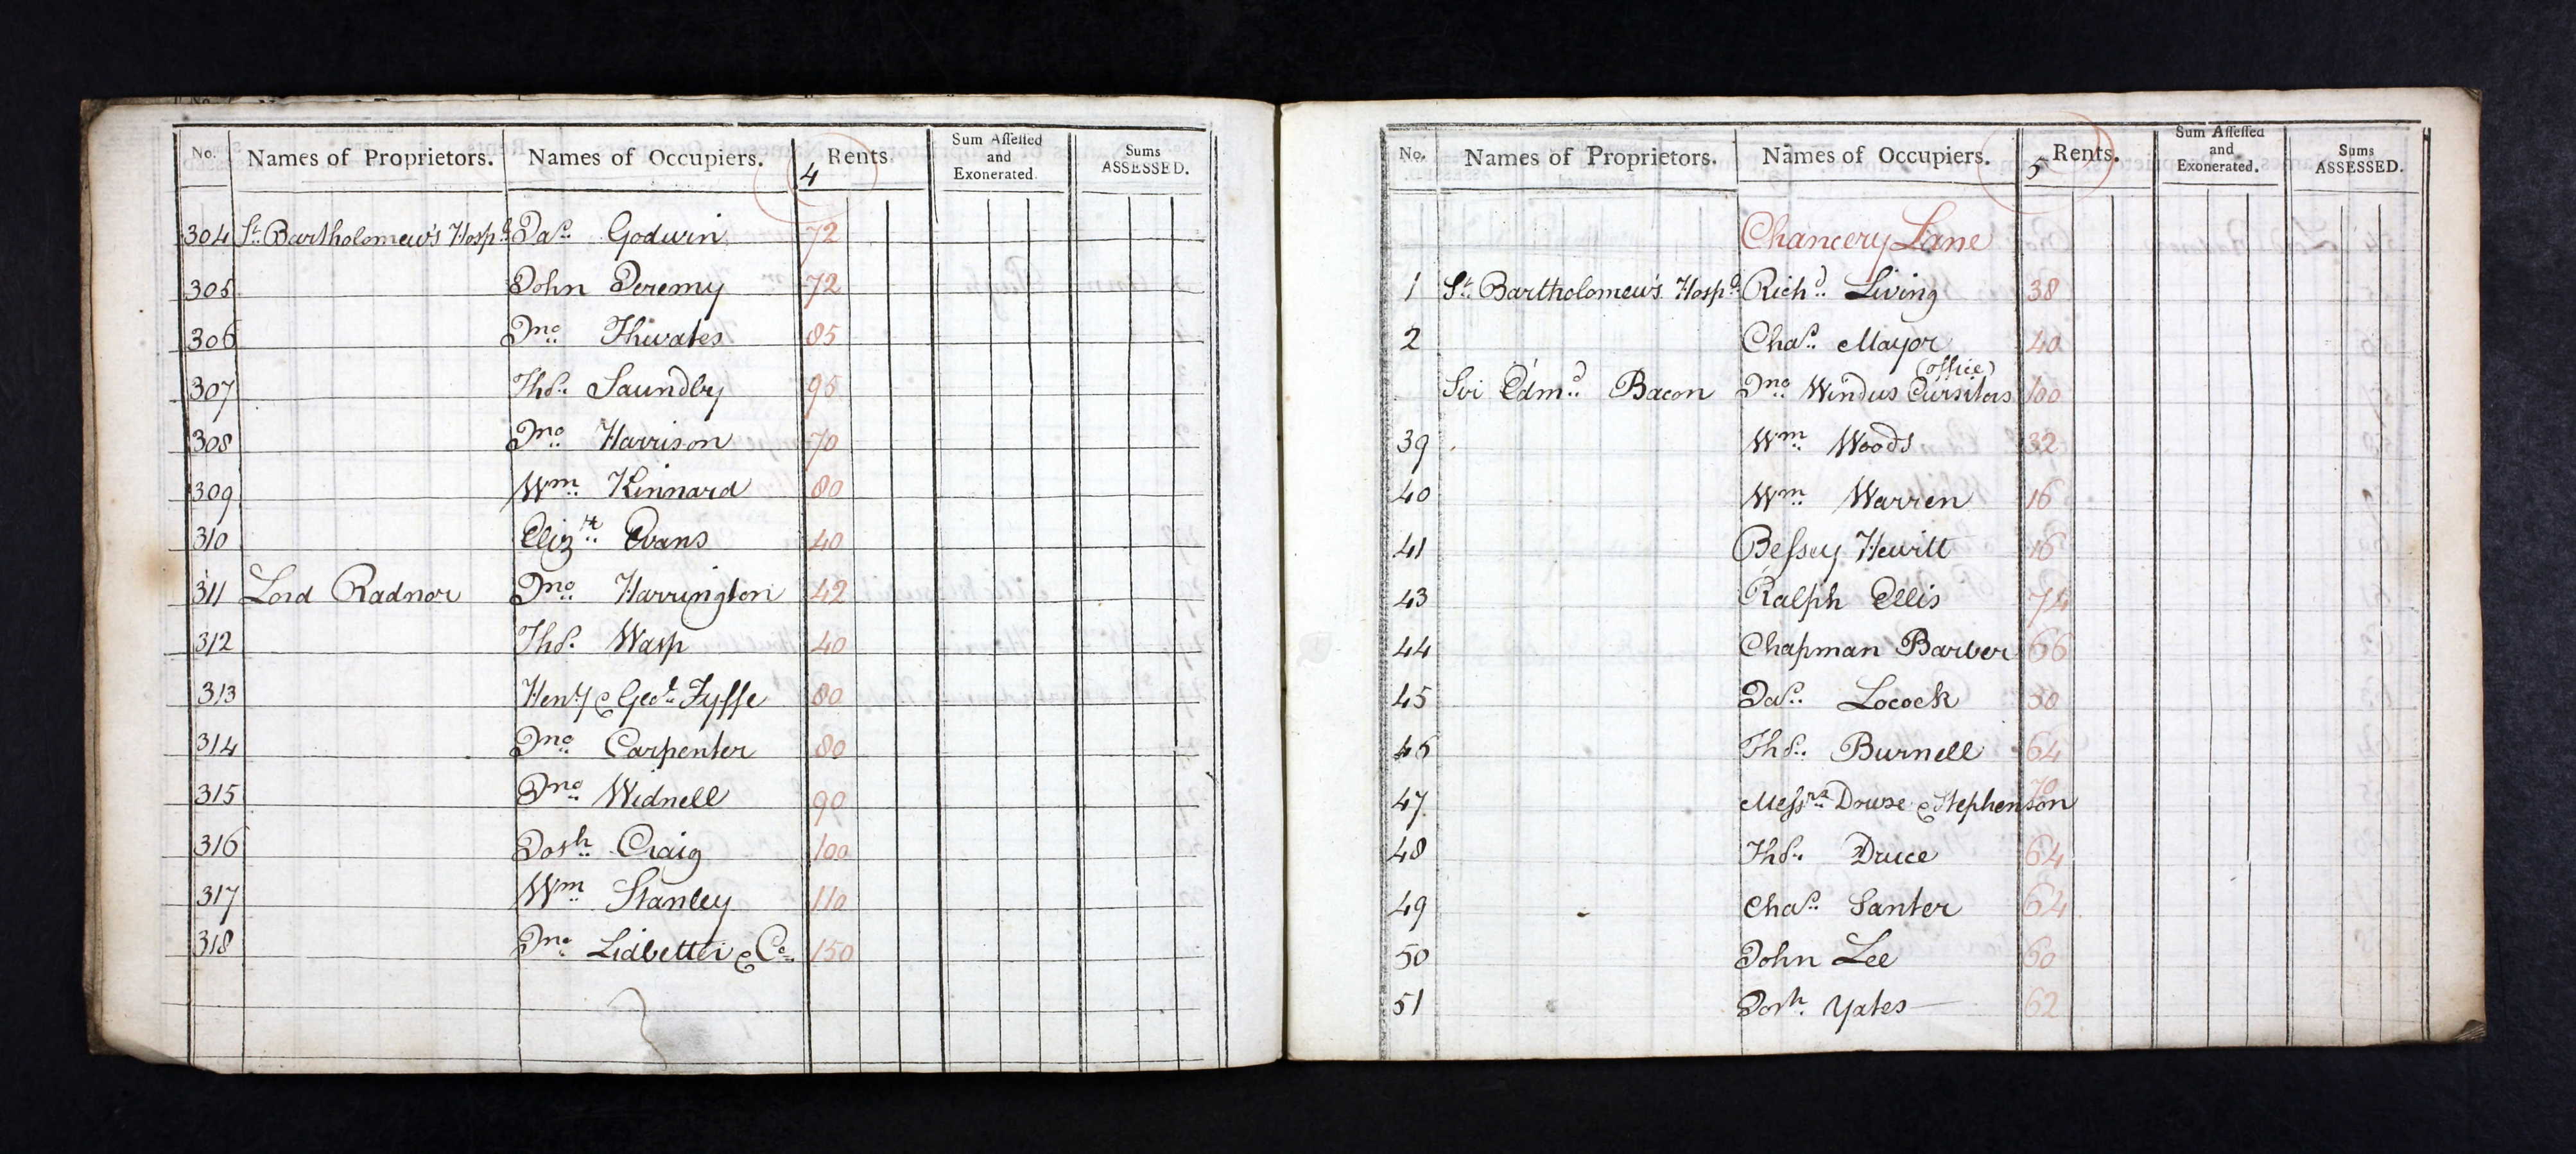 No. Names of Proprietors. Names of Occupiers. 4 Rents. Sum Assessed and Exonerated. Sums ASSESSED.
304 St. Bartholomew's Hospl. Jas. Godwin 72
305 John Jeremy 72
306 Jno. Thwates 85
307 Thos. Saundby 95
308 Jno. Harrison 70
309 Wm. Kinnard 80
310 Elizth. Evans 40
311 Lord Radnor Jno. Harrington 42
312 Thos. Wasp 40
313 Heny & Geo. Fysse 80
314 Jno. Carpenter 80
315 Jno. Widnell 90
316 Josh. Craig 100
317 Wm. Stanley 110
318 Jno. Lidbetter & Co. 150
No. Names of Proprietors. Names of Occupiers. 5 Rents. Sum Assessed and Exonerated. Sums ASSESSED.
Chancery Lane
1 St. Bartholomew's Hospl. Richd. Living 38
2 Chas. Mayor 40
(office)
Sir Edmd. Bacon Jno. Windus Cursitors 100
39 Wm. Woods 32
40 Wm. Warren 16
41 Bessey Hewitt 16
43 Ralph Ellis 74
44 Chapman Barber 66
45 Jas. Locock 30
46 Thos. Burnell 64
47 Messrs. Druse & Stephenson 70
48 Thos. Druce 64
49 Chas. Santer 64
50 John Lee 60
51 Josh. Yates 62